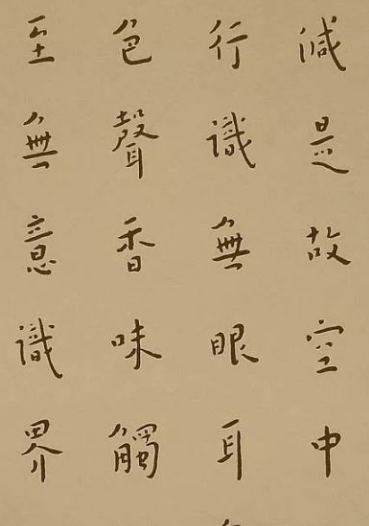 減是故空中
行識無眼耳
色聲香味觸
至無意識界